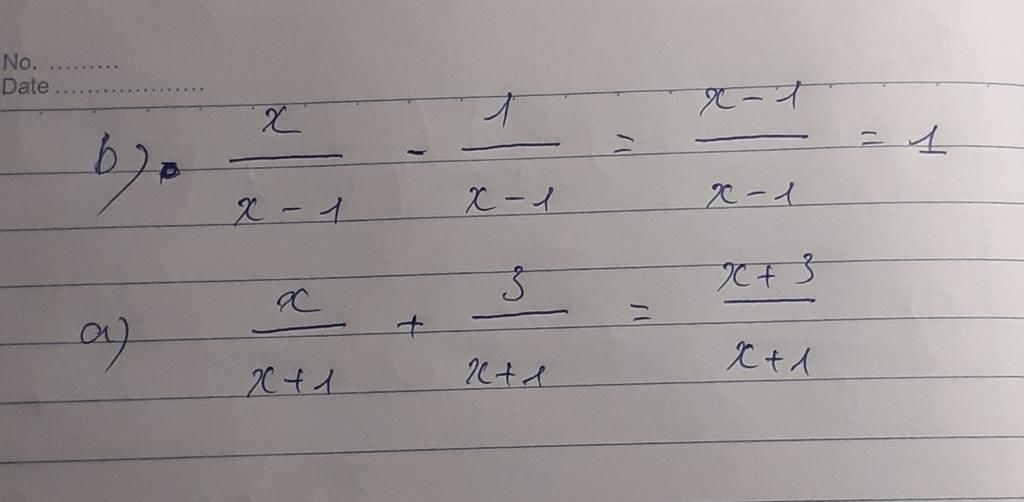 No. .........
Date ..................
b) x/(x-1) - 1/(x-1) = (x-1)/(x-1) = 1
a) x/(x+1) + 3/(x+1) = (x+3)/(x+1)